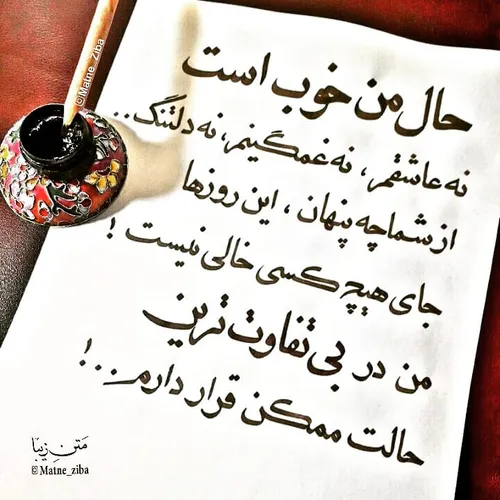 حال من خوب است
نه عاشقم، نه غمگینم، نه دلتنگ..
از شما چه پنهان، این روزها
جای هیچ کسی خالی نیست!
من در بی تفاوت ترین
حالت ممکن قرار دارم...!
©Matne_Ziba
مَتنِ زیبّا
©Matne_ziba